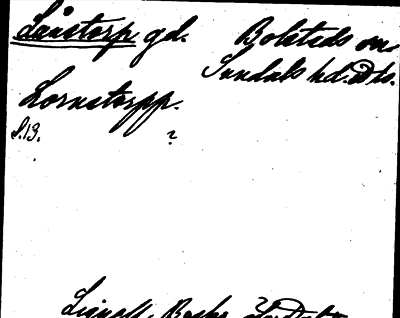 Låstorp gd. Bolstads sn
Sundals hd. Dls.
Lornstorpp.
s. 13. ?
Lignell, Beskr.